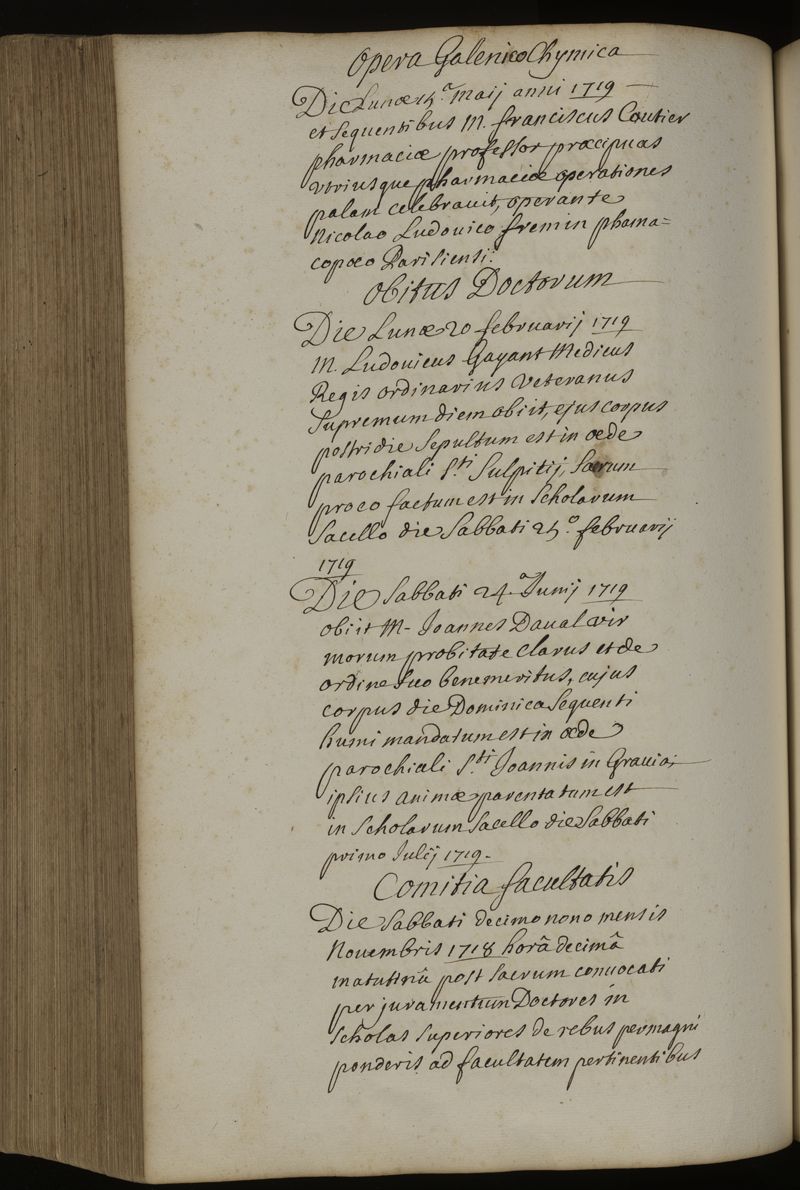 Opera Galenico Chymica
Die Lunæ 15.ª Maij anni 1719
et sequentibus M. franciscus Coutier
pharmaciæ professor præcipuas
vtriusque pharmaciæ operationes
palam celebravit, operante
Nicolao Ludovico fremin phama=
copoeo Parisiensi.
Obitus Doctorum
Die Lunæ 20 februarij 1719
M. Ludovicus Gayant Medicus
Regis ordinarius veteranus
supremum diem obiit, ejus corpus
postridie sepultum est in æde
parochiali S.ti Sulpitij, sacrum
pro eo factum est in scholarum
sacello die Sabbati 25.º februarij
1719
Die Sabbati 24.ª Junij 1719
obiit M. Joannes Daval vir
morum probitate clarus et de
ordine suo benemeritus, cujus
corpus die Dominica sequenti
humi mandatum est in æde
parochiali S.ti Joannis in Gravia;
ipsius animæ parentatum est
in scholarum sacello die Sabbati
primo Julij 1719.
Comitia facultatis
Die Sabbati decimo nono mensis
Novembris 1718 horâ decimâ
matutinâ post sacrum convocati
per juramentum Doctores in
scholas superiores de rebus permagni
ponderis ad facultatem pertinentibus